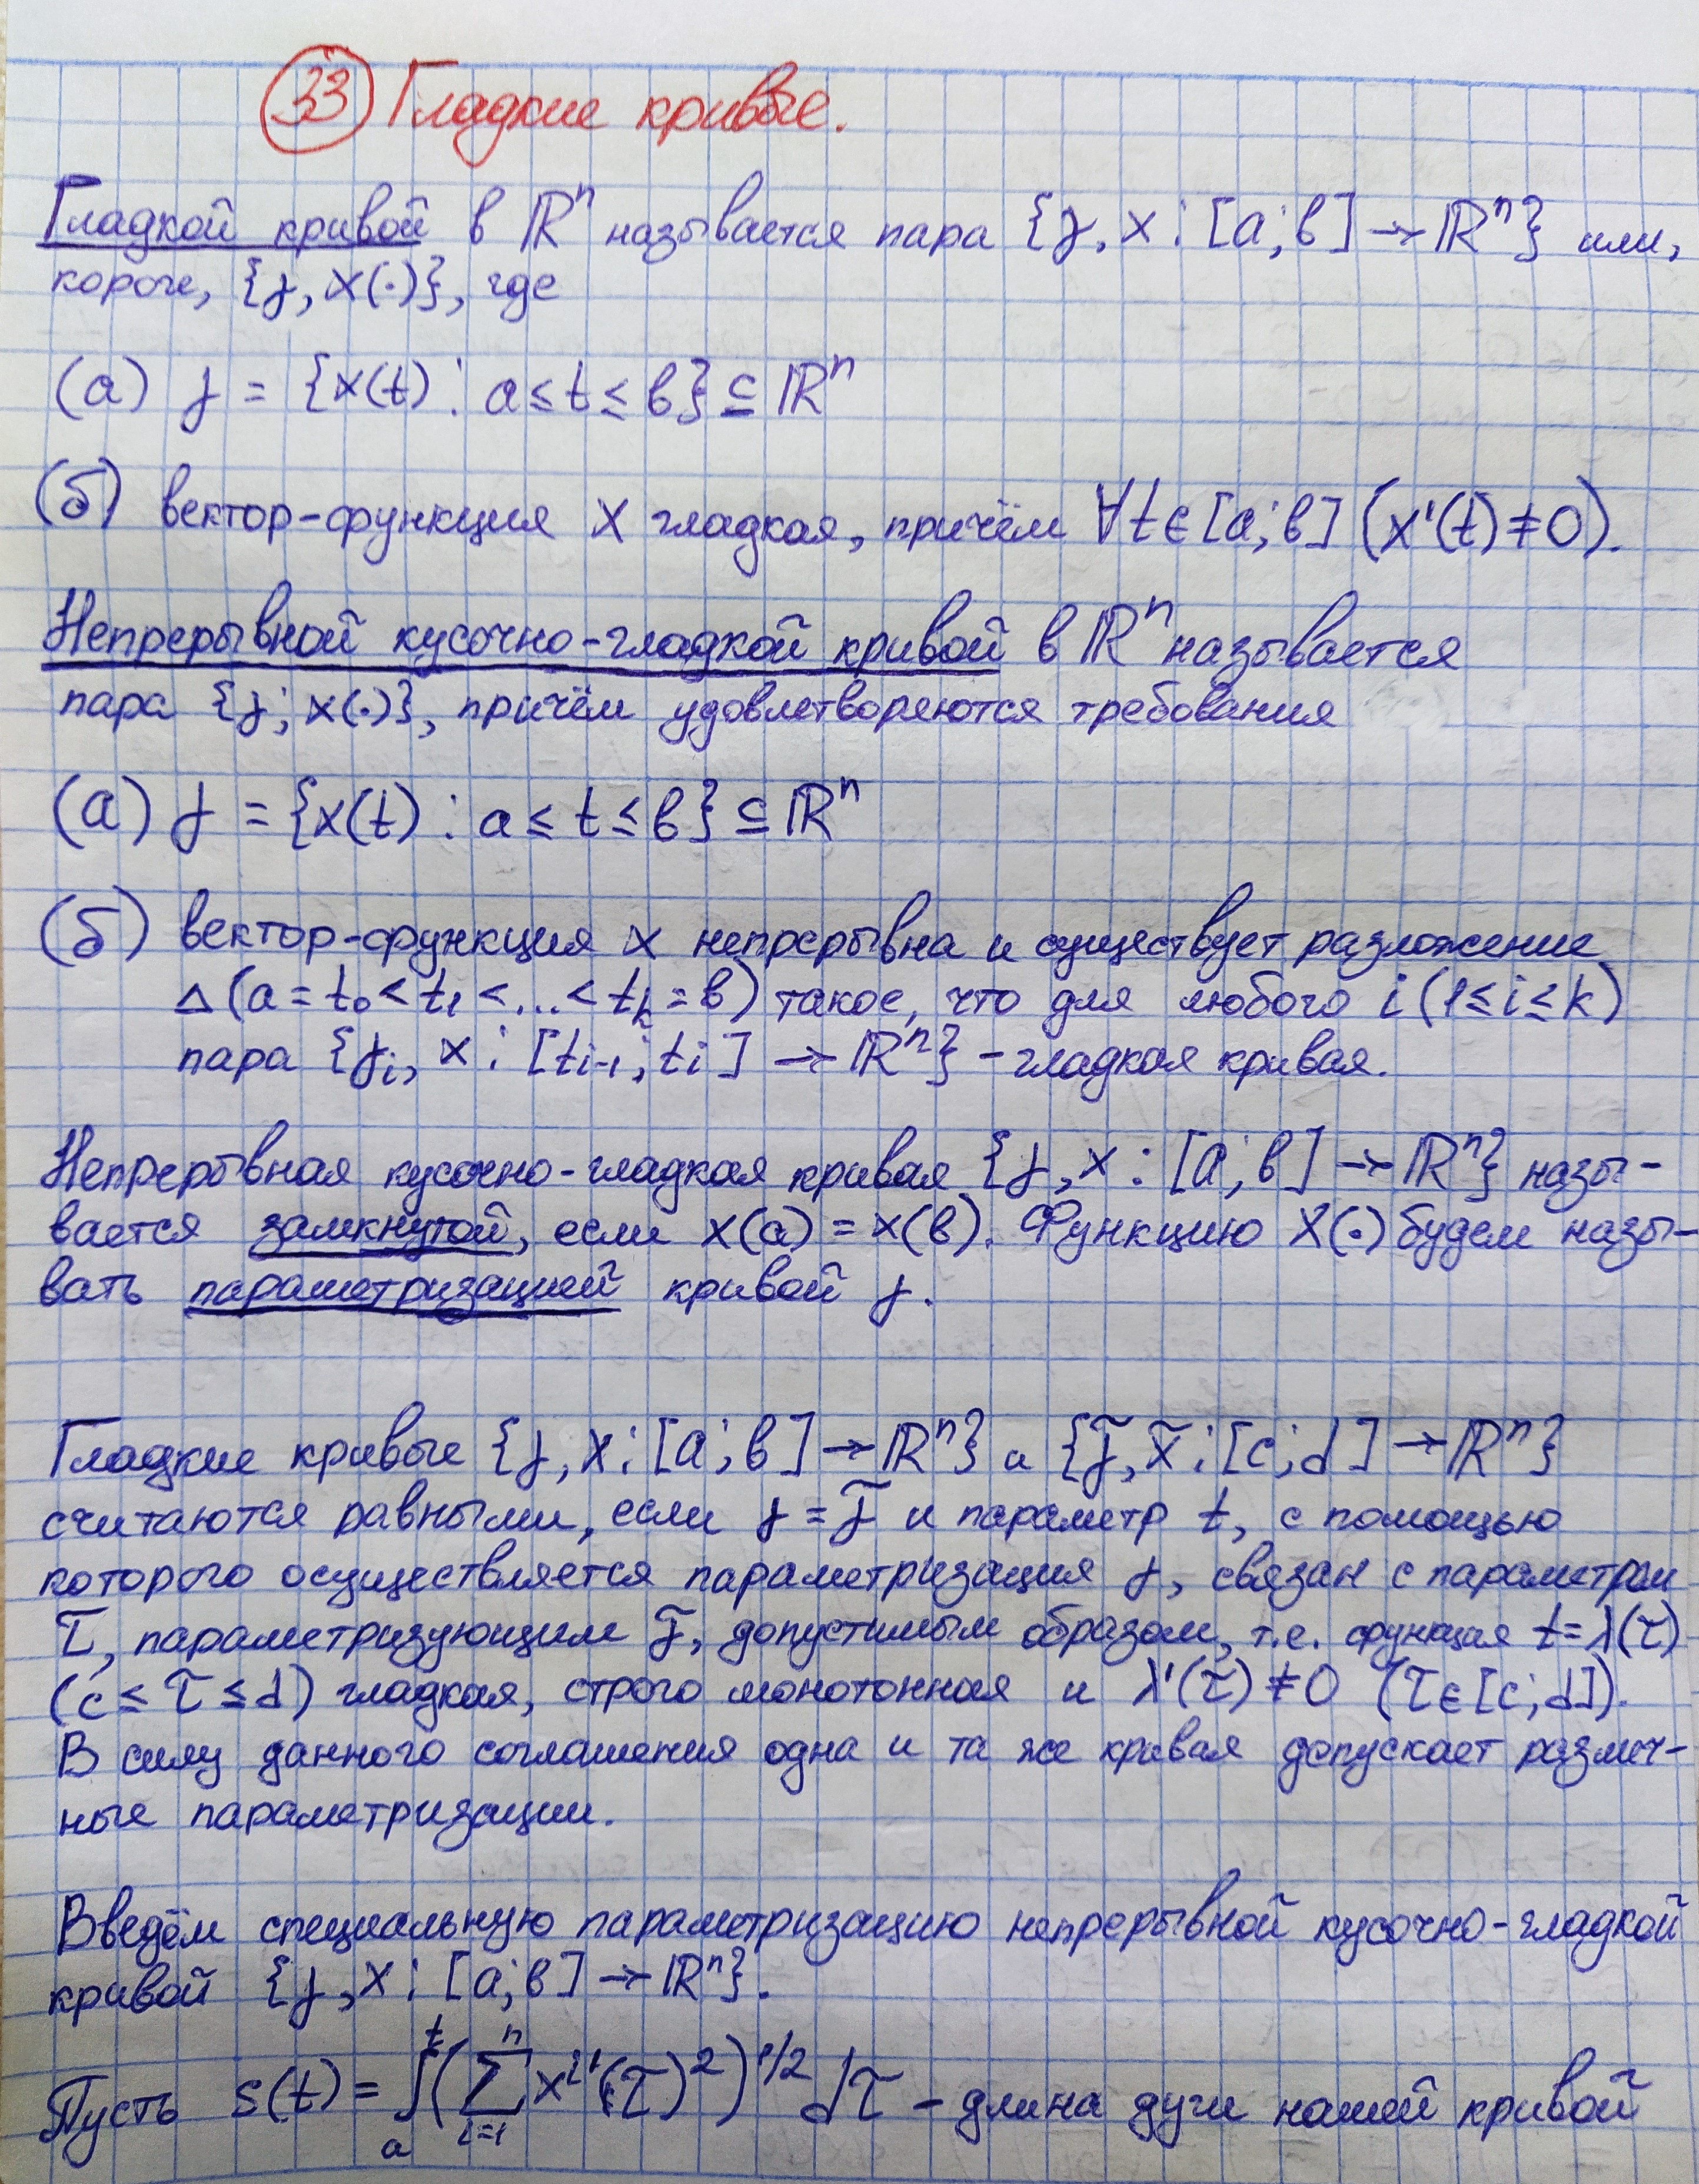 33 Гладкие кривые.
Гладкой кривой в ℝⁿ называется пара {γ, x : [a; b] → ℝⁿ} или,
короче, {γ, x(·)}, где
(а) γ = {x(t) : a ≤ t ≤ b} ⊆ ℝⁿ
(б) вектор-функция x гладкая, причём ∀t ∈ [a; b] (x'(t) ≠ 0).
Непрерывной кусочно-гладкой кривой в ℝⁿ называется
пара {γ; x(·)}, причём удовлетворяются требования
(а) γ = {x(t) : a ≤ t ≤ b} ⊆ ℝⁿ
(б) вектор-функция x непрерывна и существует разложение
Δ (a = t₀ < t₁ < ... < tₖ = b) такое, что для любого i (1 ≤ i ≤ k)
пара {γᵢ, x : [tᵢ₋₁; tᵢ] → ℝⁿ} - гладкая кривая.
Непрерывная кусочно-гладкая кривая {γ, x : [a; b] → ℝⁿ} назы-
вается замкнутой, если x(a) = x(b). Функцию x(·) будем назы-
вать параметризацией кривой γ.
Гладкие кривые {γ, x : [a; b] → ℝⁿ} и {γ̃, x̃ : [c; d] → ℝⁿ}
считаются равными, если γ = γ̃ и параметр t, с помощью
которого осуществляется параметризация γ, связан с параметром
τ, параметризующим γ̃, допустимым образом, т.е. функция t = λ(τ)
(c ≤ τ ≤ d) гладкая, строго монотонная и λ'(τ) ≠ 0 (τ ∈ [c; d]).
В силу данного соглашения одна и та же кривая допускает различ-
ные параметризации.
Введём специальную параметризацию непрерывной кусочно-гладкой
кривой {γ, x : [a; b] → ℝⁿ}.
Пусть s(t) = ∫ₐᵗ (∑ᵢ₌₁ⁿ xⁱ'(τ)²)^1/2 dτ - длина дуги нашей кривой